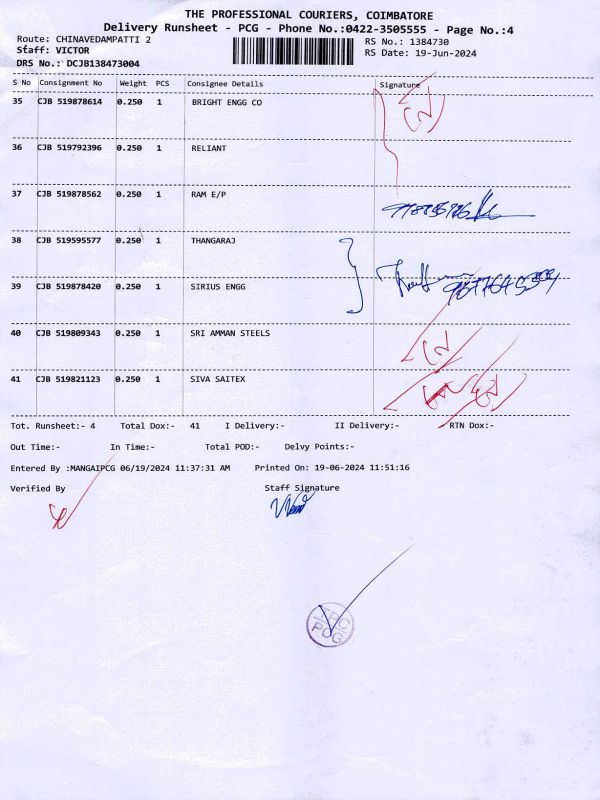 THE PROFESSIONAL COURIERS, COIMBATORE
Delivery Runsheet - PCG - Phone No.:0422-3505555 - Page No.:4
Route: CHINAVEDAMPATTI 2
RS No.: 1384730
Staff: VICTOR
RS Date: 19-Jun-2024
DRS No.: DCJB138473004
S No Consignment No Weight PCS Consignee Details Signature
35 CJB 519878614 0.250 1 BRIGHT ENGG CO
36 CJB 519792396 0.250 1 RELIANT
37 CJB 519878562 0.250 1 RAM E/P
38 CJB 519595577 0.250 1 THANGARAJ
39 CJB 519878420 0.250 1 SIRIUS ENGG
40 CJB 519809343 0.250 1 SRI AMMAN STEELS
41 CJB 519821123 0.250 1 SIVA SAITEX
Tot. Runsheet:- 4 Total Dox:- 41 I Delivery:- II Delivery:- RTN Dox:-
Out Time:- In Time:- Total POD:- Delvy Points:-
Entered By :MANGAIPCG 06/19/2024 11:37:31 AM Printed On: 19-06-2024 11:51:16
Verified By Staff Signature